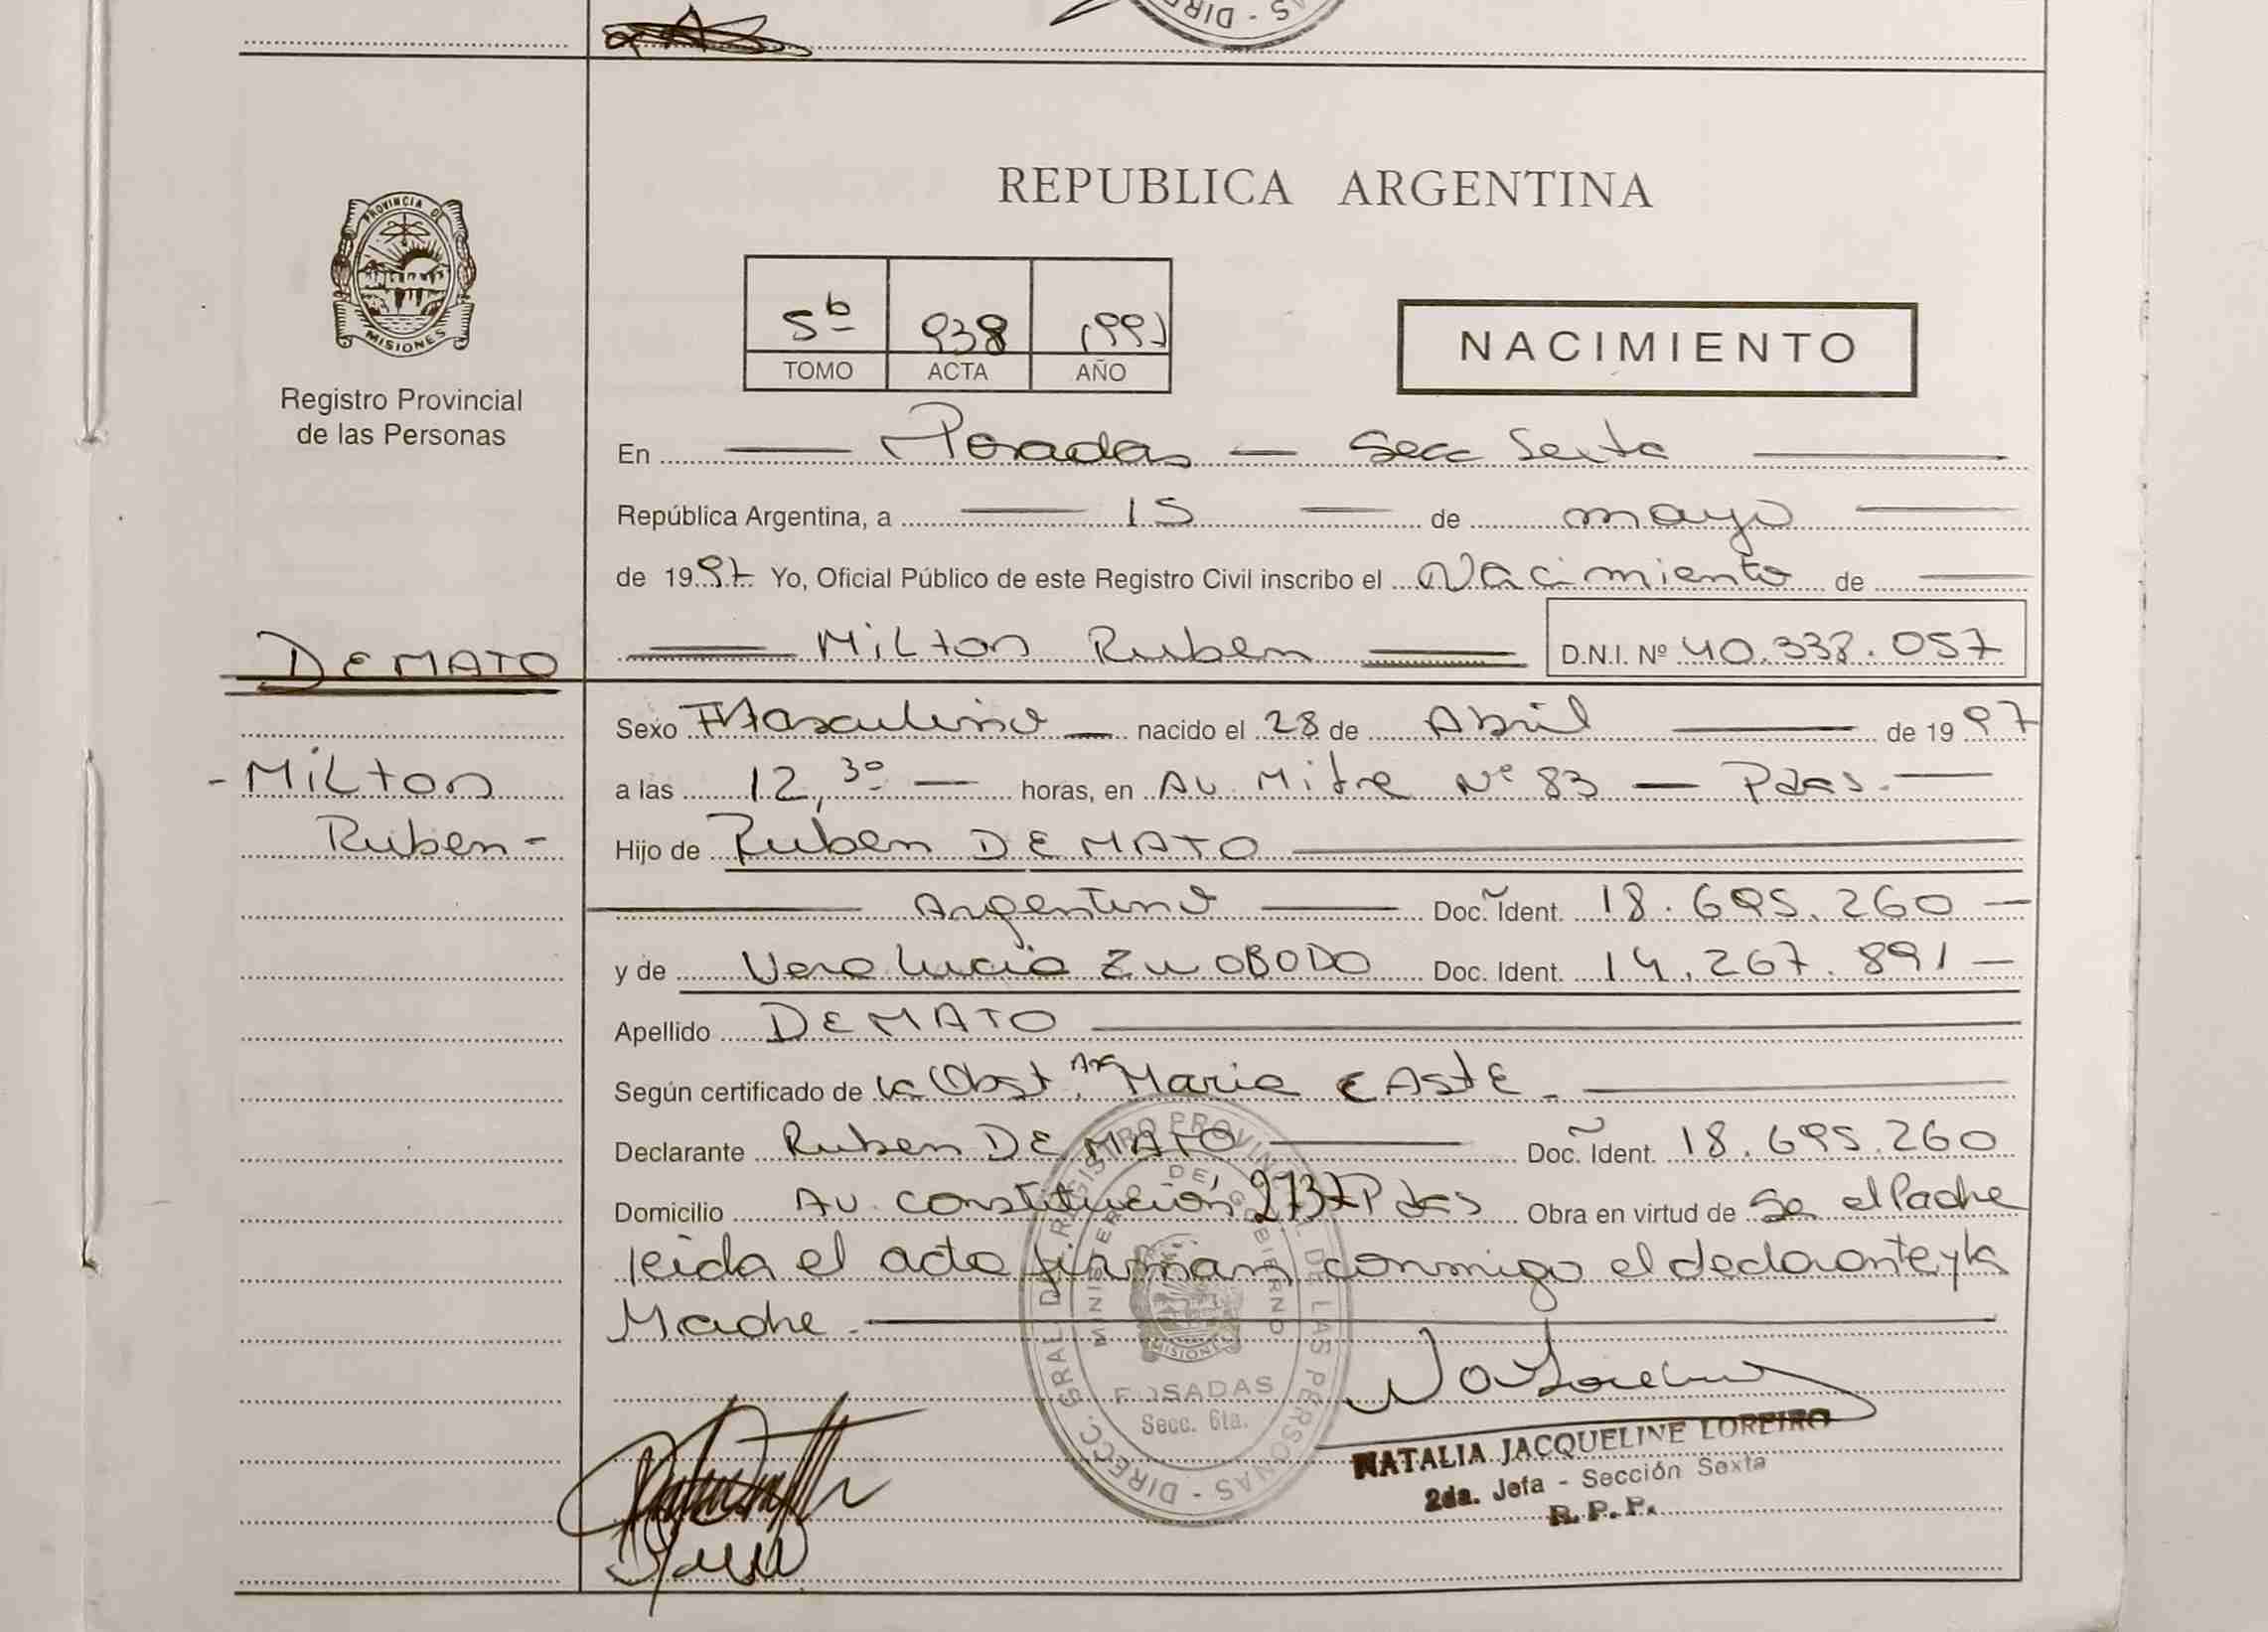 DIR - S
PROVINCIA DE
MISIONES
Registro Provincial
de las Personas
REPUBLICA ARGENTINA
5º 938 1997
TOMO ACTA AÑO
NACIMIENTO
En Posadas - Secc Sexta
República Argentina, a 15 de mayo
de 1997 Yo, Oficial Público de este Registro Civil inscribo el Nacimiento de
DE MATO Milton Ruben D.N.I. Nº 40.338.057
Sexo Masculino nacido el 28 de Abril de 1997
- Milton a las 12,30 horas, en Av. Mitre Nº 83 - Pdas.
Ruben - Hijo de Ruben DE MATO
Argentino Doc. Ident. 18.695.260
y de Vera Lucia ZWOBODO Doc. Ident. 14.267.891
Apellido DE MATO
Según certificado de la Obst. Maria CASTE.
Declarante Ruben DE MATO Doc. Ident. 18.695.260
Domicilio Av. Constitución 2737 Pdas Obra en virtud de Se el Padre
leida el acta firman conmigo el declaranteyla
Madre.
DIRECC. GRAL DEL REGISTRO PROVINCIAL DE LAS PERSONAS
MINISTERIO DE GOBIERNO
MISIONES
POSADAS
Secc. 6ta.
NATALIA JACQUELINE LOREIRO
2da. Jefa - Sección Sexta
R. P. P.